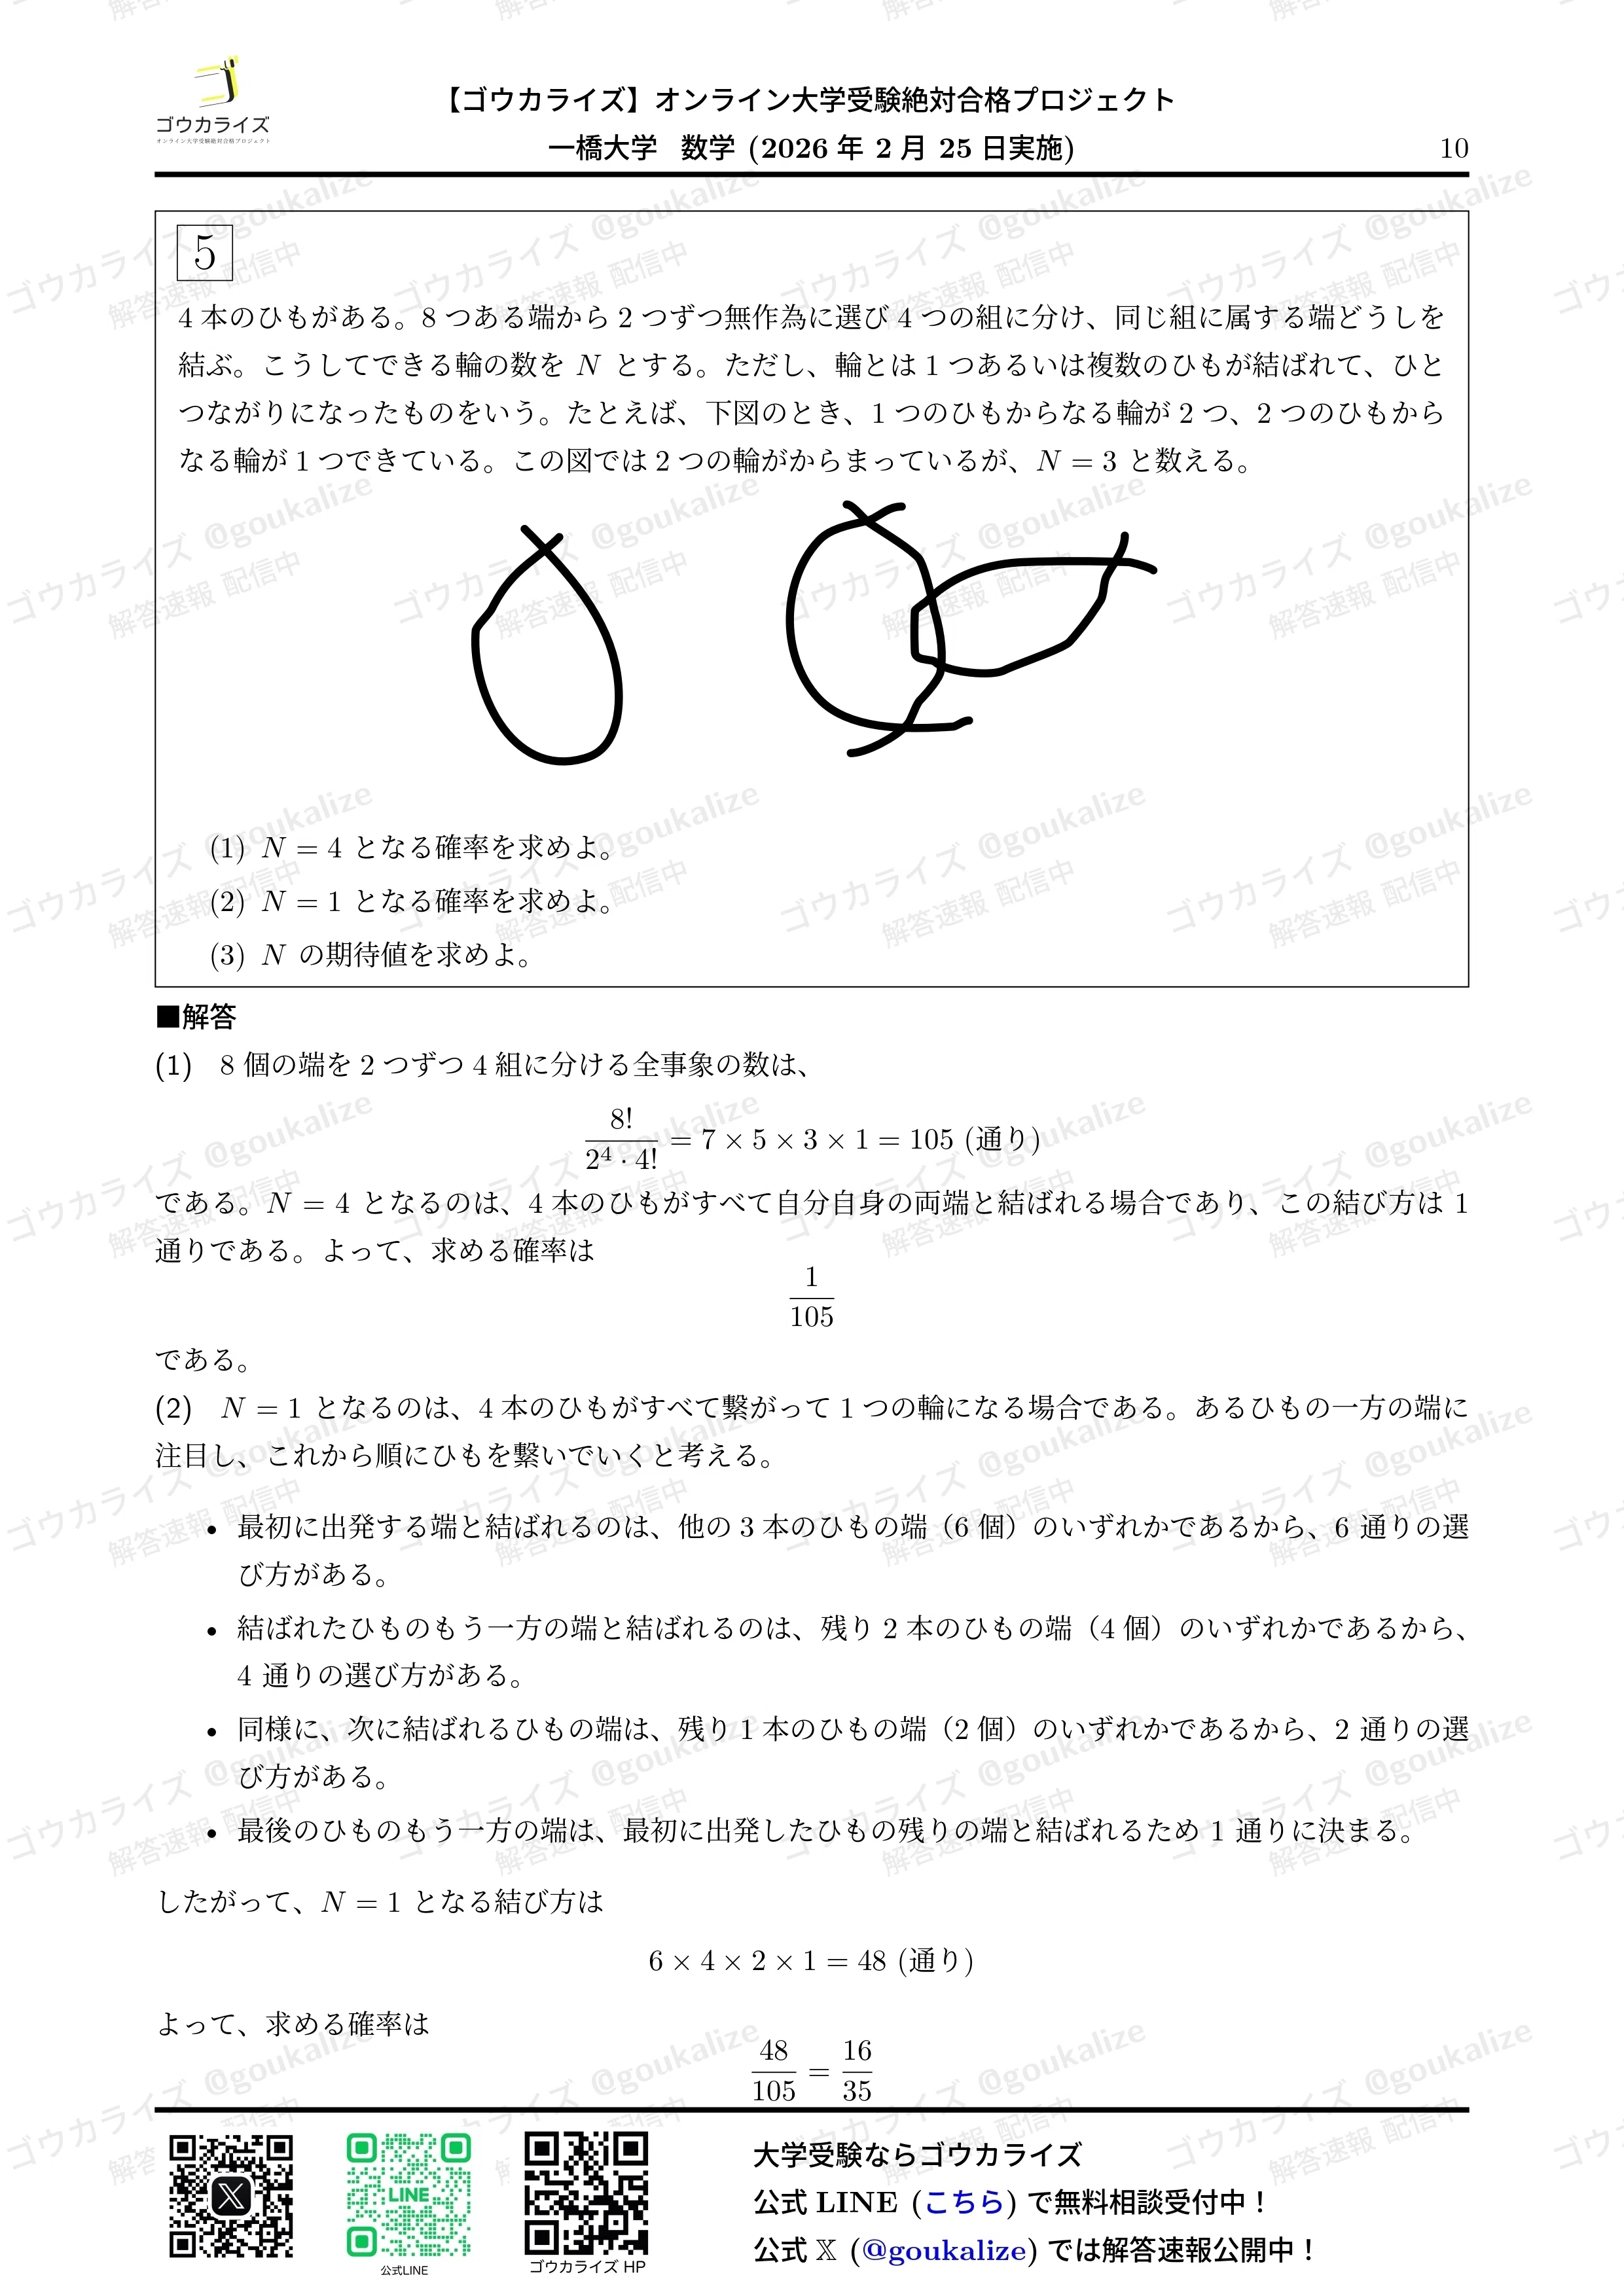 ゴウカライズ
オンライン大学受験絶対合格プロジェクト
【ゴウカライズ】オンライン大学受験絶対合格プロジェクト
一橋大学 数学 (2026 年 2 月 25 日実施)
10
5
4 本のひもがある。8 つある端から 2 つずつ無作為に選び 4 つの組に分け、同じ組に属する端どうしを
結ぶ。こうしてできる輪の数を N とする。ただし、輪とは 1 つあるいは複数のひもが結ばれて、ひと
つながりになったものをいう。たとえば、下図のとき、1 つのひもからなる輪が 2 つ、2 つのひもから
なる輪が 1 つできている。この図では 2 つの輪がからまっているが、N = 3 と数える。
(1) N = 4 となる確率を求めよ。
(2) N = 1 となる確率を求めよ。
(3) N の期待値を求めよ。
■解答
(1) 8 個の端を 2 つずつ 4 組に分ける全事象の数は、
8!/(2⁴ · 4!) = 7 × 5 × 3 × 1 = 105 (通り)
である。N = 4 となるのは、4 本のひもがすべて自分自身の両端と結ばれる場合であり、この結び方は 1
通りである。よって、求める確率は
1/105
である。
(2) N = 1 となるのは、4 本のひもがすべて繋がって 1 つの輪になる場合である。あるひもの一方の端に
注目し、これから順にひもを繋いでいくと考える。
• 最初に出発する端と結ばれるのは、他の 3 本のひもの端（6 個）のいずれかであるから、6 通りの選
び方がある。
• 結ばれたひものもう一方の端と結ばれるのは、残り 2 本のひもの端（4 個）のいずれかであるから、
4 通りの選び方がある。
• 同様に、次に結ばれるひもの端は、残り 1 本のひもの端（2 個）のいずれかであるから、2 通りの選
び方がある。
• 最後のひものもう一方の端は、最初に出発したひもの残りの端と結ばれるため 1 通りに決まる。
したがって、N = 1 となる結び方は
6 × 4 × 2 × 1 = 48 (通り)
よって、求める確率は
48/105 = 16/35
LINE
公式LINE
ゴウカライズ HP
大学受験ならゴウカライズ
公式 LINE (こちら) で無料相談受付中！
公式 𝕏 (@goukalize) では解答速報公開中！
ゴウカライズ @goukalize
解答速報 配信中